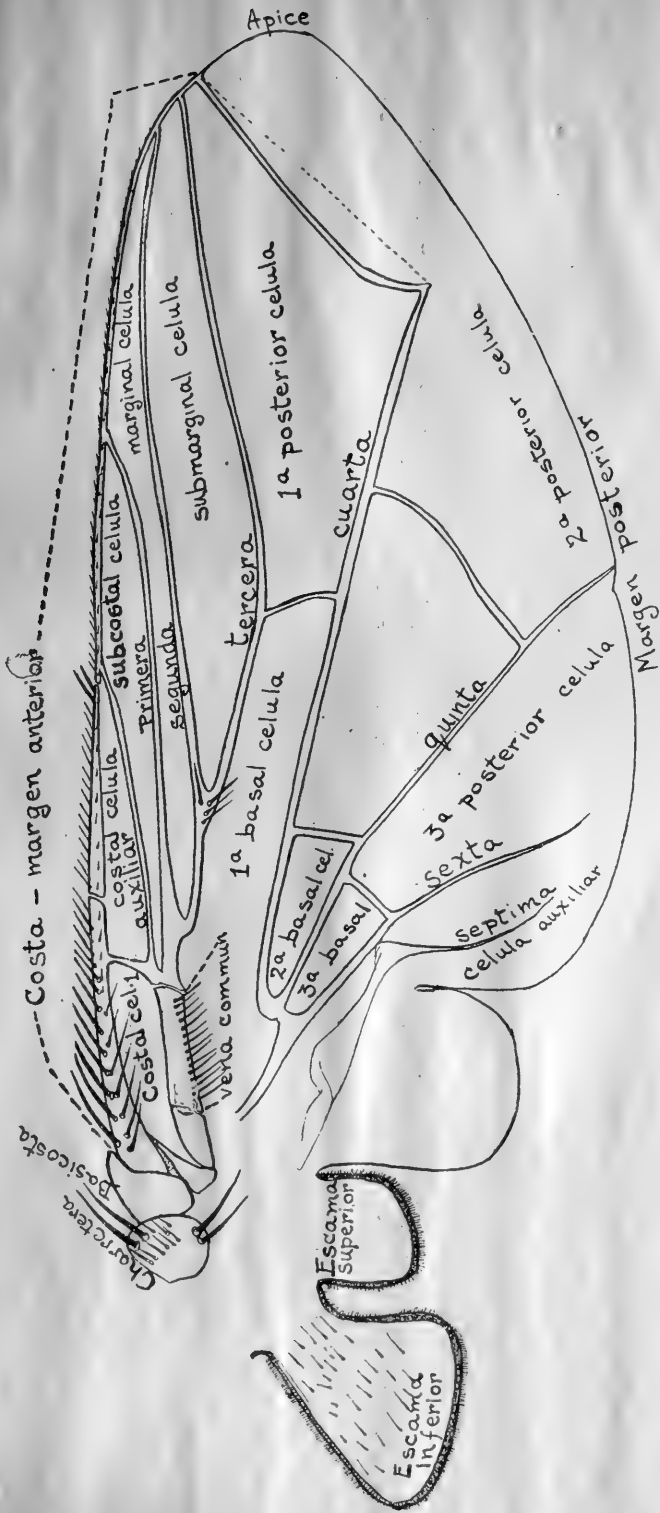 Apice
Costa - margen anterior
marginal celula
submarginal celula
1a posterior celula
2a posterior celula
Margen posterior
subcostal celula
Primera
segunda
tercera
cuarta
quinta
costal celula
auxiliar
1a basal celula
3a posterior celula
2a basal cel.
3a basal
sexta
septima
celula auxiliar
Costal cel. 1
vena commun
Basicosta
Charretera
Escama
superior
Escama
inferior